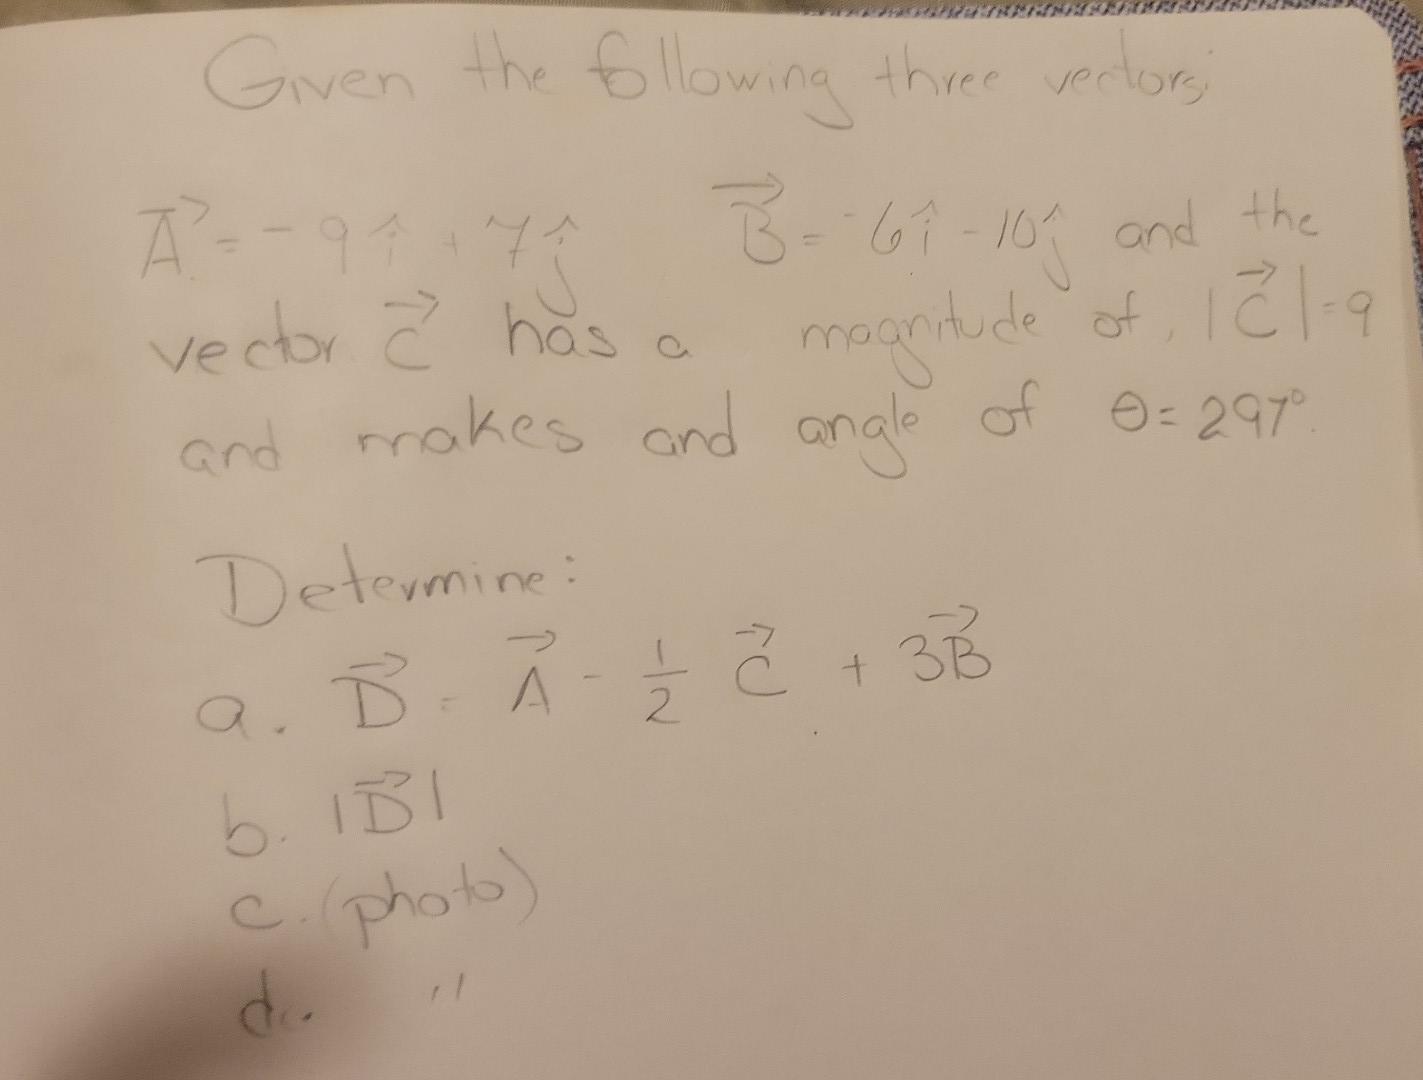 Given the following three vectors;
A⃗ = -9î + 7ĵ B⃗ = -6î - 10ĵ and the
vector C⃗ has a magnitude of, |C⃗| = 9
and makes and angle of θ = 297°.
Determine:
a. D⃗ = A⃗ - 1/2 C⃗ + 3B⃗
b. |D⃗|
c. (photo)
d. "